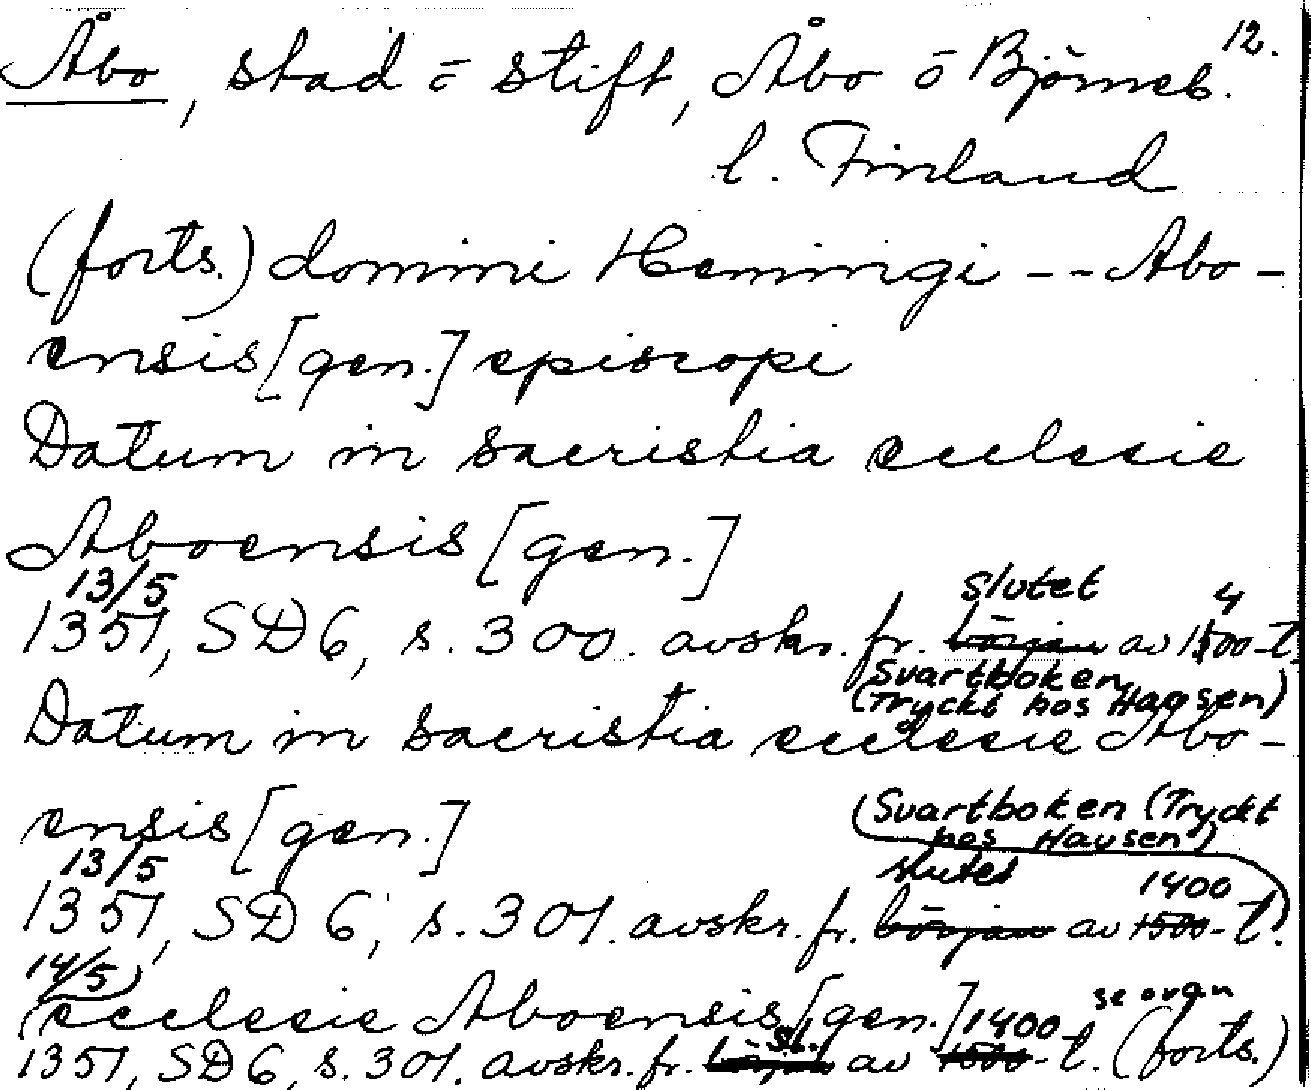 12.
Åbo, stad o stift, Åbo o Björneb.
l. Finland
(forts.) domini Hemmigi -- Abo-
ensis [gen.] episcopi
Datum in sacristia ecclesie
Aboensis [gen.]
13/5 slutet 4
1351, SD 6, s. 300. avskr. fr. början av 1500-t.
Svartboken
(Tryckt hos Hausen)
Datum in sacristia ecclesie Abo-
ensis [gen.]
(Svartboken (Tryckt
hos Hausen)
13/5 slutet 1400
1351, SD 6, s. 301. avskr. fr. början av 1500-t.
14/5
ecclesie Aboensis [gen.] se ovan
sl. 1400
1351, SD 6, s. 301. avskr. fr. början av 1500-t. (forts.)